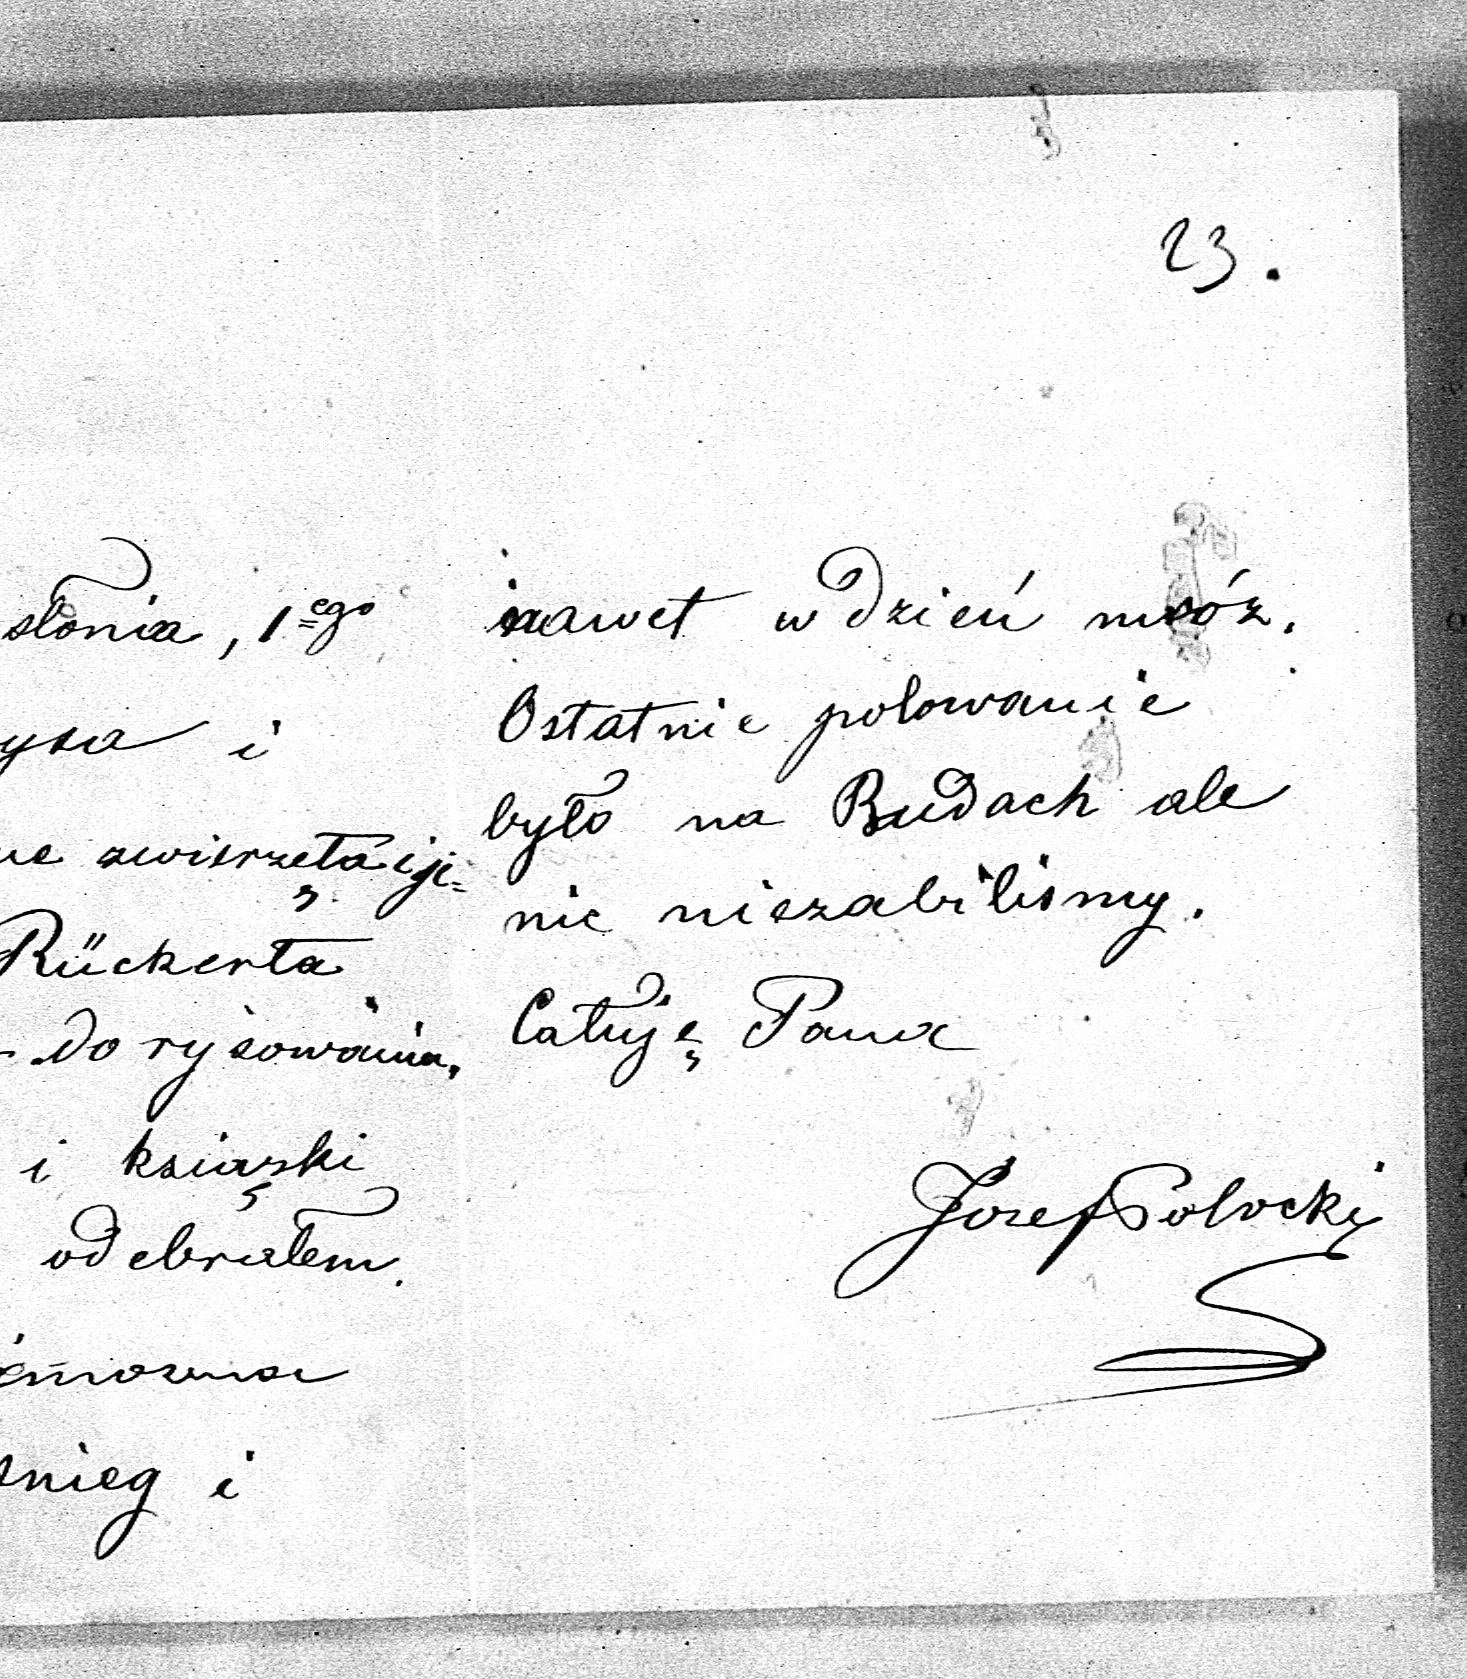 23.
słonia, 1ego
i
zwierzęta i je=
Rückerta
do rysowania,
i ksiąski
odebrałem.
śnieg i
nawet w dzień mróz.
Ostatnie polowanie
było na Budach ale
nic niezabilismy.
Całuję Pana
Józef Potocki